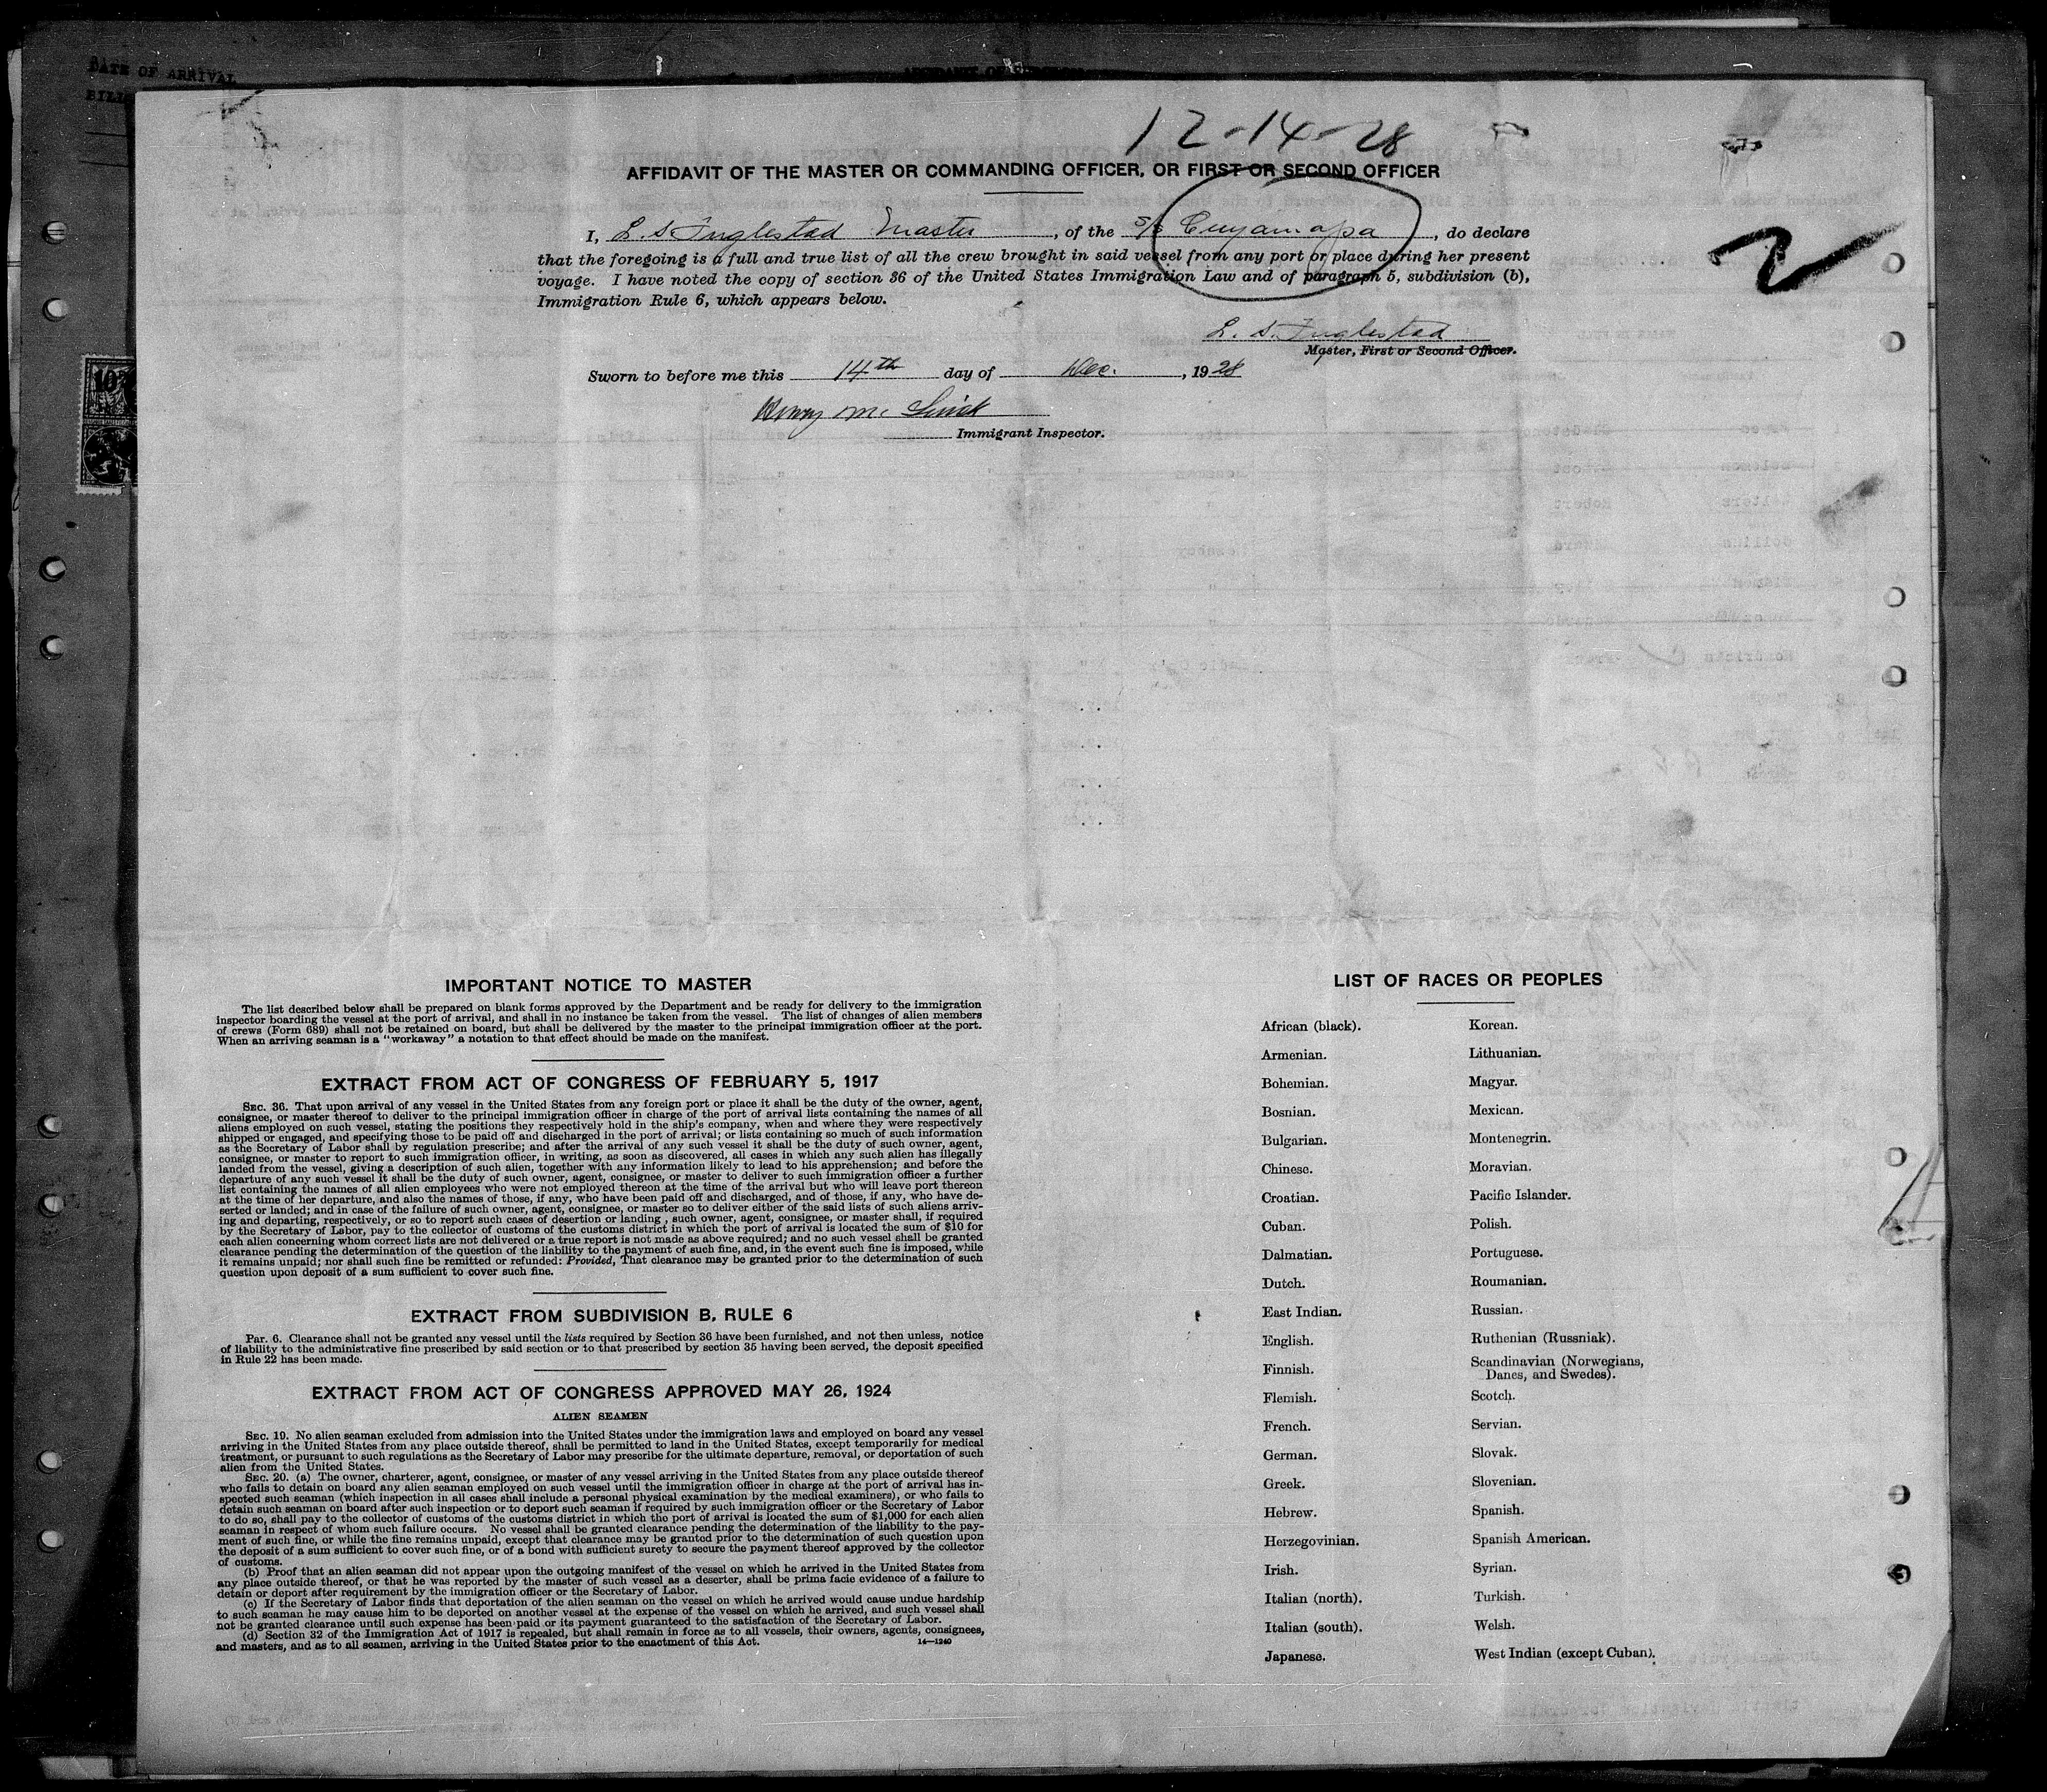 DATE OF ARRIVAL
12-14-28
AFFIDAVIT OF THE MASTER OR COMMANDING OFFICER, OR FIRST OR SECOND OFFICER
I, L. S. Inglestad Master, of the S/S Cuyamapa, do declare
that the foregoing is a full and true list of all the crew brought in said vessel from any port or place during her present
voyage. I have noted the copy of section 36 of the United States Immigration Law and of paragraph 5, subdivision (b),
Immigration Rule 6, which appears below.
2
L. S. Inglestad
Master, First or Second Officer.
Sworn to before me this 14th day of Dec., 1928
Henry Mc
Immigrant Inspector.
IMPORTANT NOTICE TO MASTER
The list described below shall be prepared on blank forms approved by the Department and be ready for delivery to the immigration
inspector boarding the vessel at the port of arrival, and shall in no instance be taken from the vessel. The list of changes of alien members
of crews (Form 689) shall not be retained on board, but shall be delivered by the master to the principal immigration officer at the port.
When an arriving seaman is a "workaway" a notation to that effect should be made on the manifest.
EXTRACT FROM ACT OF CONGRESS OF FEBRUARY 5, 1917
SEC. 36. That upon arrival of any vessel in the United States from any foreign port or place it shall be the duty of the owner, agent,
consignee, or master thereof to deliver to the principal immigration officer in charge of the port of arrival lists containing the names of all
aliens employed on such vessel, stating the positions they respectively hold in the ship's company, when and where they were respectively
shipped or engaged, and specifying those to be paid off and discharged in the port of arrival; or lists containing so much of such information
as the Secretary of Labor shall by regulation prescribe; and after the arrival of any such vessel it shall be the duty of such owner, agent,
consignee, or master to report to such immigration officer, in writing, as soon as discovered, all cases in which any such alien has illegally
landed from the vessel, giving a description of such alien, together with any information likely to lead to his apprehension; and before the
departure of any such vessel it shall be the duty of such owner, agent, consignee, or master to deliver to such immigration officer a further
list containing the names of all alien employees who were not employed thereon at the time of the arrival but who will leave port thereon
at the time of her departure, and also the names of those, if any, who have been paid off and discharged, and of those, if any, who have de-
serted or landed; and in case of the failure of such owner, agent, consignee, or master so to deliver either of the said lists of such aliens arriv-
ing and departing, respectively, or so to report such cases of desertion or landing , such owner, agent, consignee, or master shall, if required
by the Secretary of Labor, pay to the collector of customs of the customs district in which the port of arrival is located the sum of $10 for
each alien concerning whom correct lists are not delivered or a true report is not made as above required; and no such vessel shall be granted
clearance pending the determination of the question of the liability to the payment of such fine, and, in the event such fine is imposed, while
it remains unpaid; nor shall such fine be remitted or refunded: Provided, That clearance may be granted prior to the determination of such
question upon deposit of a sum sufficient to cover such fine.
EXTRACT FROM SUBDIVISION B, RULE 6
Par. 6. Clearance shall not be granted any vessel until the lists required by Section 36 have been furnished, and not then unless, notice
of liability to the administrative fine prescribed by said section or to that prescribed by section 35 having been served, the deposit specified
in Rule 22 has been made.
EXTRACT FROM ACT OF CONGRESS APPROVED MAY 26, 1924
ALIEN SEAMEN
SEC. 19. No alien seaman excluded from admission into the United States under the immigration laws and employed on board any vessel
arriving in the United States from any place outside thereof, shall be permitted to land in the United States, except temporarily for medical
treatment, or pursuant to such regulations as the Secretary of Labor may prescribe for the ultimate departure, removal, or deportation of such
alien from the United States.
SEC. 20. (a) The owner, charterer, agent, consignee, or master of any vessel arriving in the United States from any place outside thereof
who fails to detain on board any alien seaman employed on such vessel until the immigration officer in charge at the port of arrival has in-
spected such seaman (which inspection in all cases shall include a personal physical examination by the medical examiners), or who fails to
detain such seaman on board after such inspection or to deport such seaman if required by such immigration officer or the Secretary of Labor
to do so, shall pay to the collector of customs of the customs district in which the port of arrival is located the sum of $1,000 for each alien
seaman in respect of whom such failure occurs. No vessel shall be granted clearance pending the determination of the liability to the pay-
ment of such fine, or while the fine remains unpaid, except that clearance may be granted prior to the determination of such question upon
the deposit of a sum sufficient to cover such fine, or of a bond with sufficient surety to secure the payment thereof approved by the collector
of customs.
(b) Proof that an alien seaman did not appear upon the outgoing manifest of the vessel on which he arrived in the United States from
any place outside thereof, or that he was reported by the master of such vessel as a deserter, shall be prima facie evidence of a failure to
detain or deport after requirement by the immigration officer or the Secretary of Labor.
(c) If the Secretary of Labor finds that deportation of the alien seaman on the vessel on which he arrived would cause undue hardship
to such seaman he may cause him to be deported on another vessel at the expense of the vessel on which he arrived, and such vessel shall
not be granted clearance until such expense has been paid or its payment guaranteed to the satisfaction of the Secretary of Labor.
(d) Section 32 of the Immigration Act of 1917 is repealed, but shall remain in force as to all vessels, their owners, agents, consignees,
and masters, and as to all seamen, arriving in the United States prior to the enactment of this Act. 14—1240
LIST OF RACES OR PEOPLES
African (black). Korean.
Armenian. Lithuanian.
Bohemian. Magyar.
Bosnian. Mexican.
Bulgarian. Montenegrin.
Chinese. Moravian.
Croatian. Pacific Islander.
Cuban. Polish.
Dalmatian. Portuguese.
Dutch. Roumanian.
East Indian. Russian.
English. Ruthenian (Russniak).
Finnish. Scandinavian (Norwegians,
Danes, and Swedes).
Flemish. Scotch.
French. Servian.
German. Slovak.
Greek. Slovenian.
Hebrew. Spanish.
Herzegovinian. Spanish American.
Irish. Syrian.
Italian (north). Turkish.
Italian (south). Welsh.
Japanese. West Indian (except Cuban).